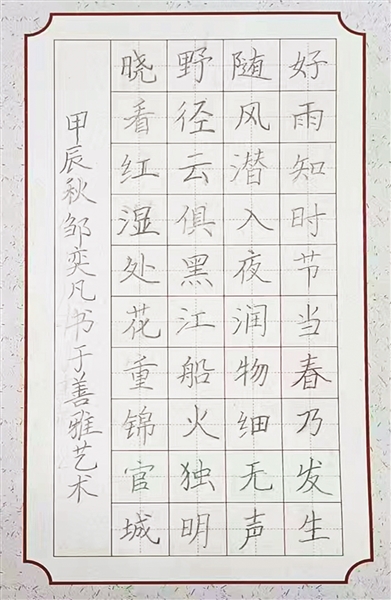 好雨知时节当春乃发生
随风潜入夜润物细无声
野径云俱黑江船火独明
晓看红湿处花重锦官城
甲辰秋邹奕凡书于善雅艺术